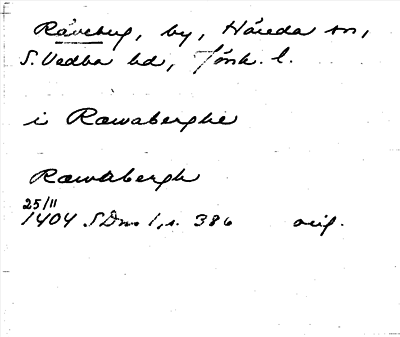 Råveberg, by, Håreda sn,
S. Vedbo hd, Jönk. l.
i Rawaberghe
Rawabergh
25/11
1404 SDns 1, s. 386 orig.